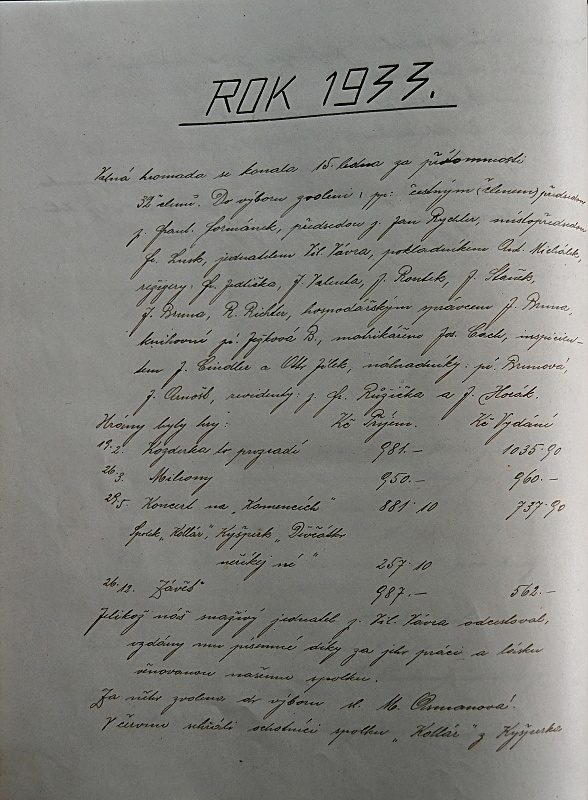 ROK 1933.
Valná hromada se konala 15. ledna za přítomnosti
32 členů. Do výboru zvoleni: pp: čestným (členem) předsedou
p. Frant. Formánek, předsedou p. Jan Rychler, místopředsedou
Fr. Lusk, jednatelem Vil. Vávra, pokladníkem Ant. Michálek,
režisery: Fr. Jedlička, J. Valenta, J. Rontek, J. Stančk,
J. Bruna, R. Richter, hospodářským správcem J. Bruna,
knihovní pí. Ježková B., matrikářem Jos. Cach, inspicien-
tem J. Cindler a Ott. Jílek, náhradníky: pí. Brunová,
J. Arnošt, revidenty: p. Fr. Růžička a J. Horák.
Hrány byly hry: Kč Příjem. Kč Vydání
19.2. Kozderka to prozradí 981.— 1035.90
26.3. Miliony 950.— 960.—
29.5. Koncert na „Komencích" 881.10 737.90
Spolek „Kollár", Kyšperk „Děvčátko
neříkej ne" 257.10
26.12. Závěť 987.— 562.—
Jelikož náš snaživý jednatel p. Vil. Vávra odcestoval,
vzdány mu písemné díky za jeho práci a lásku
věnovanou našemu spolku.
Za něho zvolena do výboru sl. M. Osmanová.
V červnu sehráli ochotníci spolku „Kollár" z Kyšperka